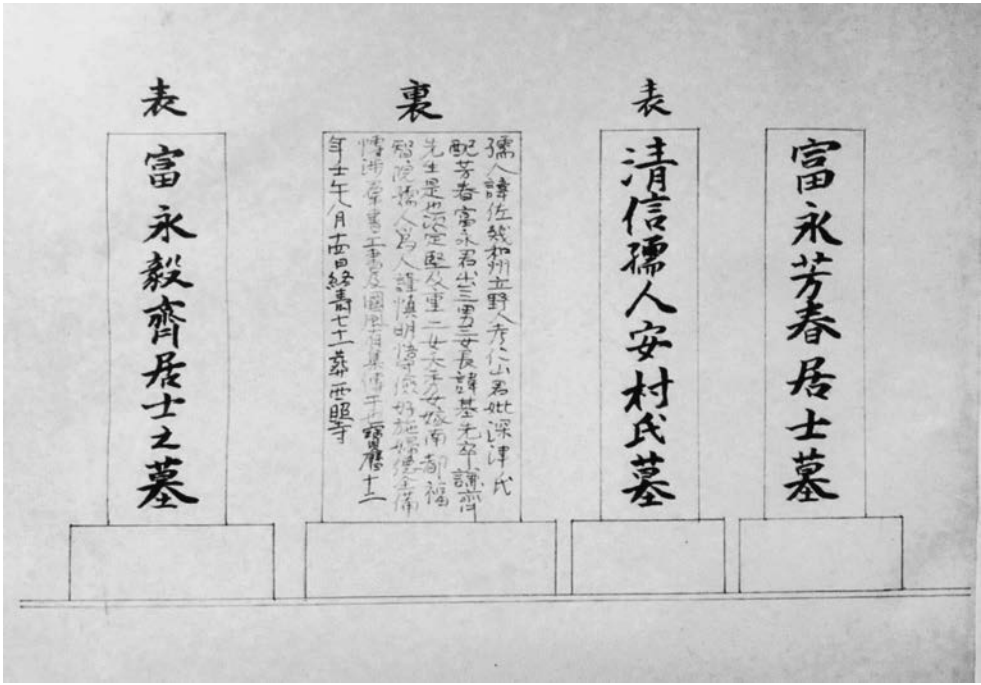 富永芳春居士墓
表
清信孺人安村氏墓
裏
孺人諱佐幾和州立野人考仁山君妣深津氏
配芳春富永君出三男二女長諱基先卒謙齊
先生是也次定堅次重二女夭季女嫁南都福
智院孺人為人謹慎明儉好施婦德全備
渉草書工書及國風有集傳于世寶暦十二
年壬午八月十四日終壽七十一葬西照寺
表
富永毅齊居士之墓